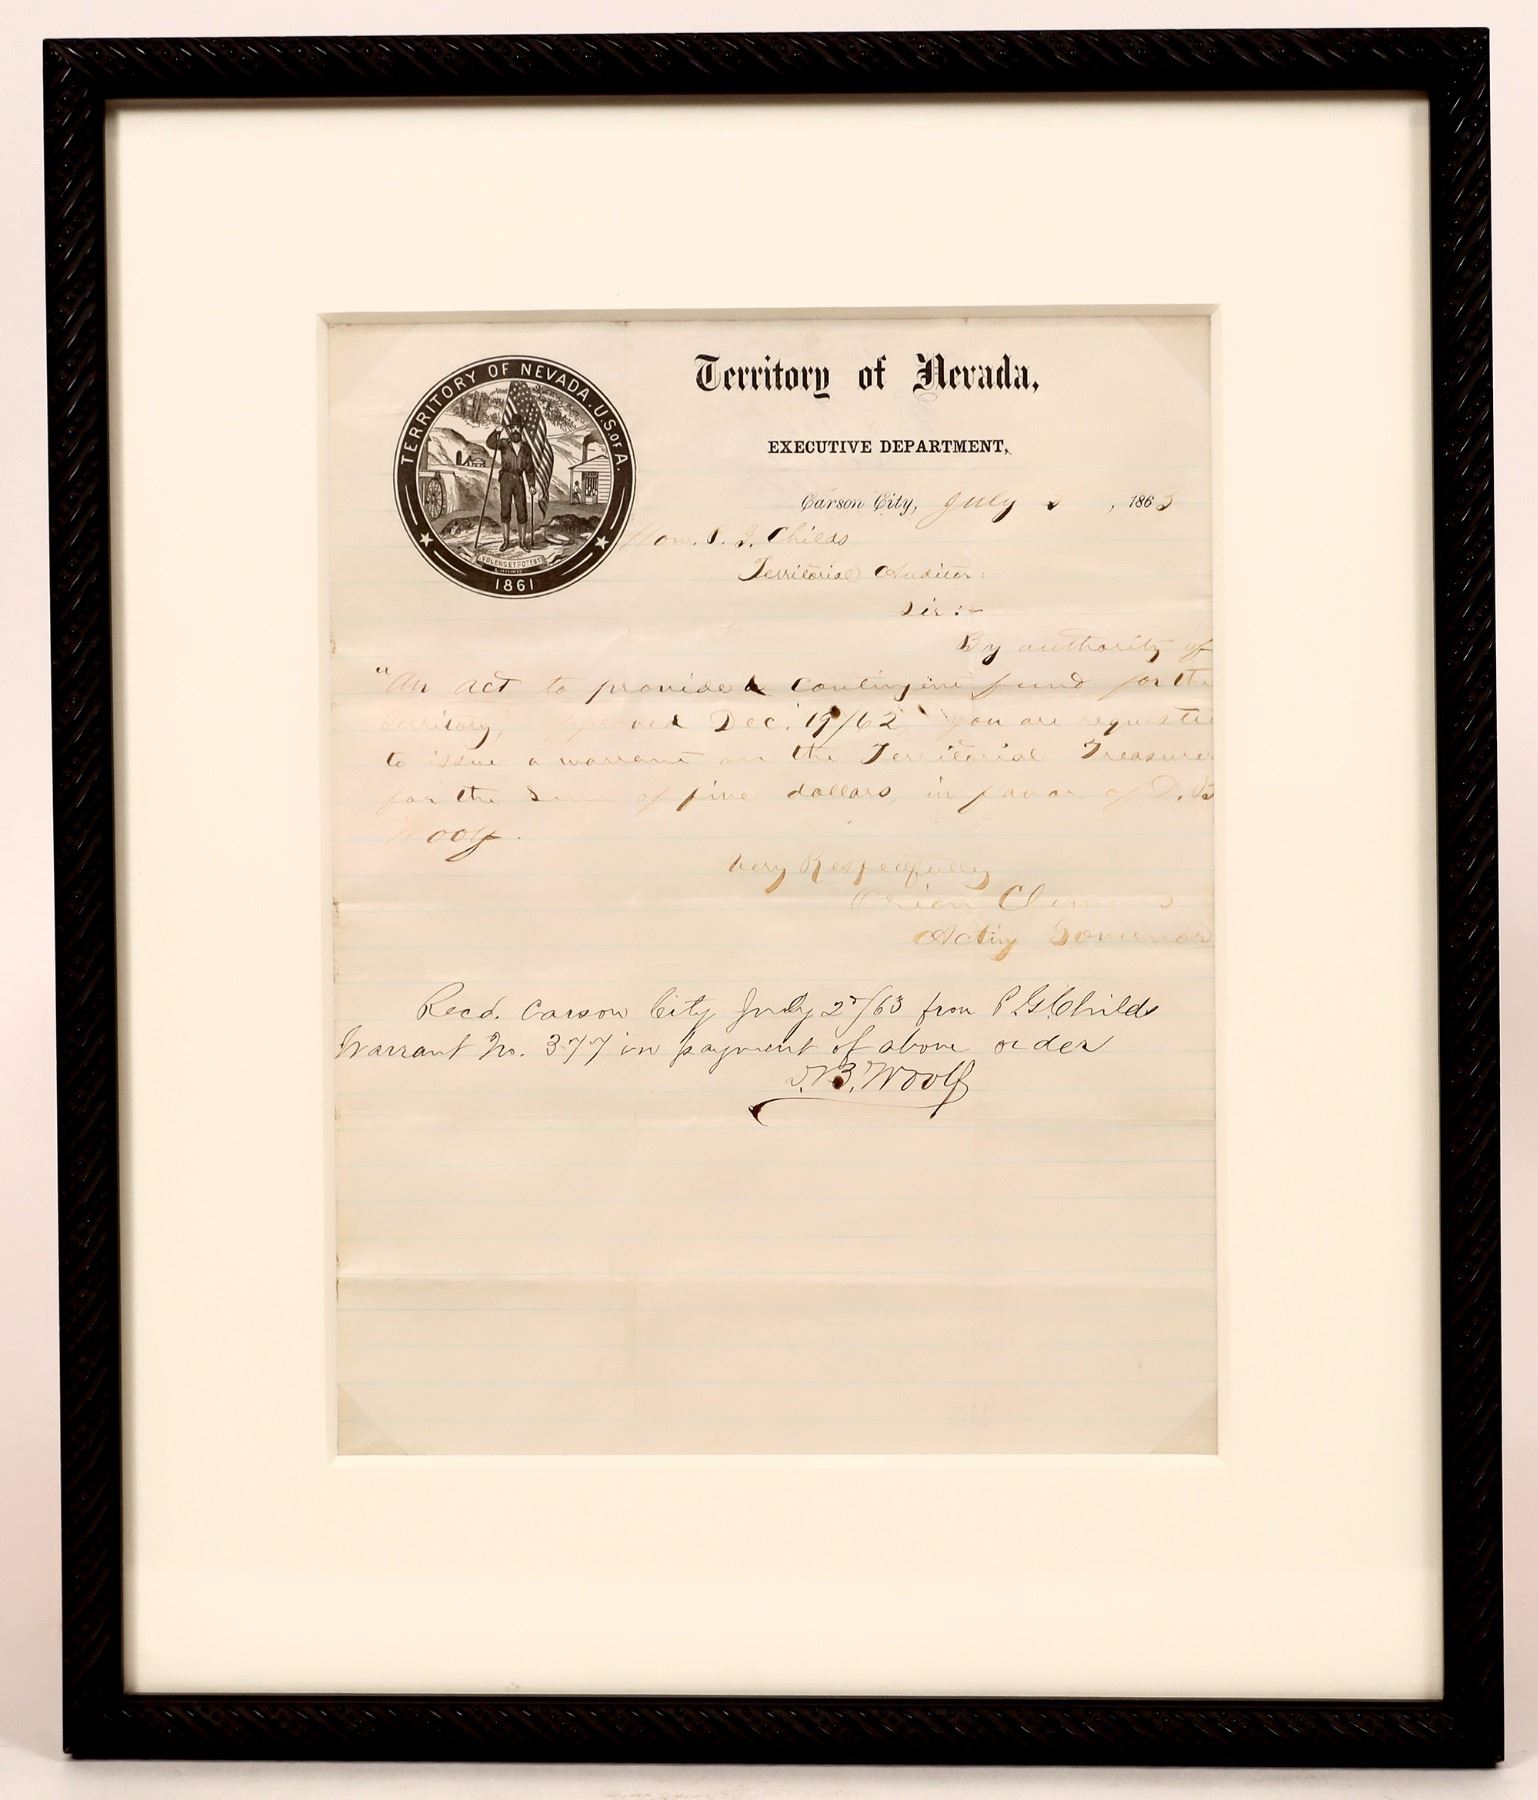 TERRITORY OF NEVADA. U.S. OF A.
VOLENS ET POTENS
1861
Territory of Nevada,
EXECUTIVE DEPARTMENT,
Carson City, July 2, 1863
Hon. P. G. Childs
Territorial Auditor:
Sir:-
By authority of
"An act to provide a contingent fund for the
Territory," approved Dec. 19/62, you are requeste
to issue a warrant on the Territorial Treasurer
for the sum of five dollars, in favor of D. B
Woolf.
Very Respectfully
Orion Clemens
Acting Governor
Recd. Carson City July 2d/63 from P. G. Childs
Warrant No. 377 in payment of above order
D. B. Woolf